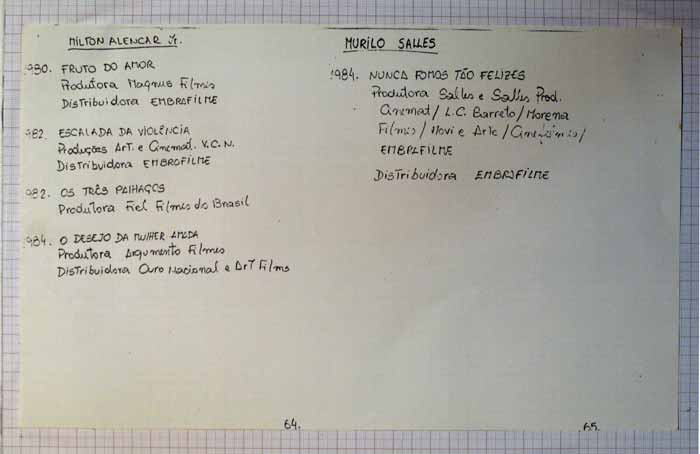 MILTON ALENCAR Jr.
1980. FRUTO DO AMOR
Produtora Magnus Filmes
Distribuidora EMBRAFILME
982. ESCALADA DA VIOLÊNCIA
Produções Art. e Cinemat. V.C.N.
Distribuidora EMBRAFILME
982. OS TRÊS PALHAÇOS
Produtora Fiel Filmes do Brasil
1984. O DESEJO DA MULHER AMADA
Produtora Argumento Filmes
Distribuidora Ouro Nacional e Art Films
64.
MURILO SALLES
1984. NUNCA FOMOS TÃO FELIZES
Produtora Salles e Salles Prod.
Cinemat / L.C. Barreto / Morena
Filmes / Movi e Arte /
EMBRAFILME
Distribuidora EMBRAFILME
65.